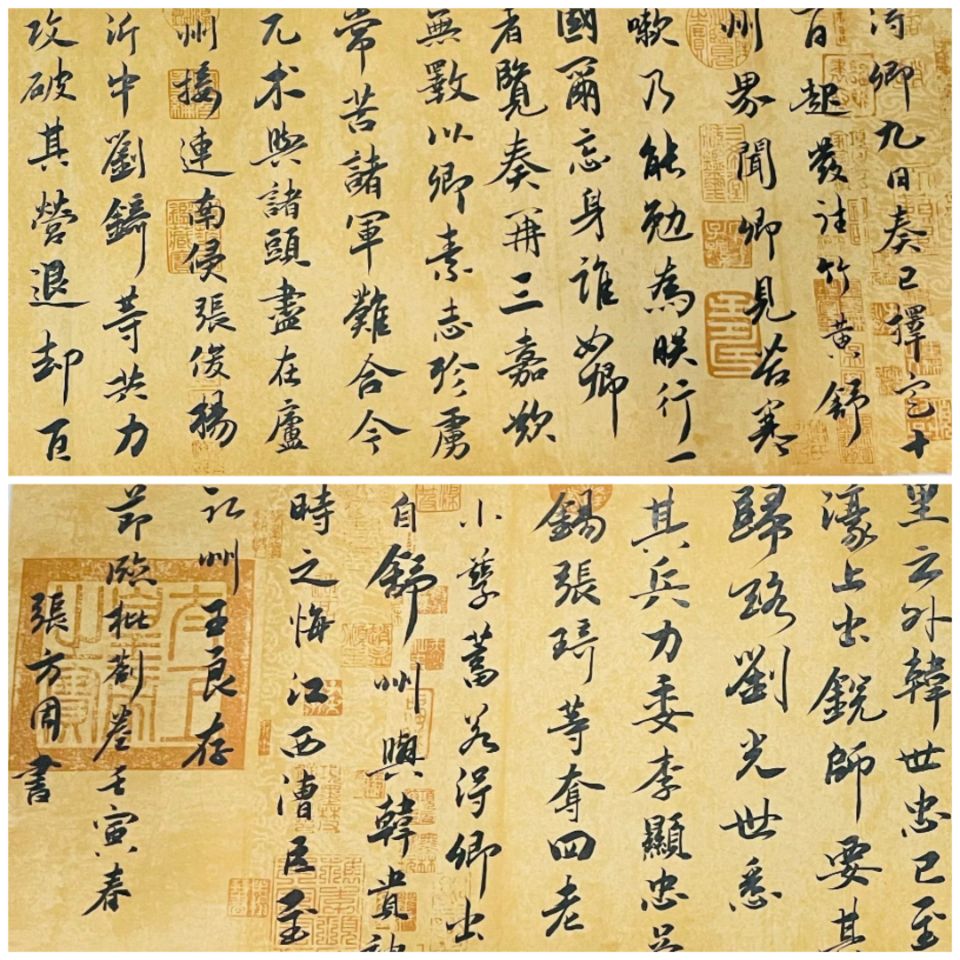 得卿九日奏已擇定十
一日起發往竹黄舒
州界聞卿見苦寒
嗽乃能勉為朕行一
國爾忘身誰如卿
者覽奏再三嘉歎
無斁以卿素志殄虜
常苦諸軍難合今
兀术與諸頭盡在廬
州接連南侵張俊楊
沂中劉錡等共力
攻破其營退却百
里之外韓世忠已至
濠上出銳師要其
歸路劉光世悉
其兵力委李顯忠吳
錫張琦等奪回老
小孽蓄若得卿出
自舒州與韓貴神
時之悔江西漕臣至
江州王良存
節臨批劄卷壬寅春
張方周書